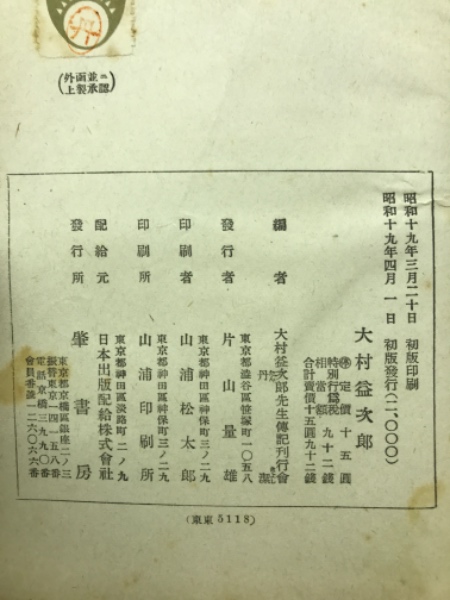 (外函並ニ
上製承認)
昭和十九年三月二十日 初版印刷
昭和十九年四月一日 初版發行(二、〇〇〇)
大村益次郎
定價十五圓
特別行爲税
相當額 九十二錢
合計賣價十五圓九十二錢
編者 大村益次郎先生傳記刊行會
發行者 東京都澁谷區笹塚町一〇五八
片山量雄
印刷者 東京都神田區神保町三ノ二九
山浦松太郎
印刷所 東京都神田區神保町三ノ二九
山浦印刷所
配給元 東京都神田區淡路町二ノ九
日本出版配給株式會社
發行所 肇書房
東京都京橋區銀座二ノ三
振替東京一四一五八番
電話京橋三九九〇番
會員番號一二六〇六六番
(東東5118)